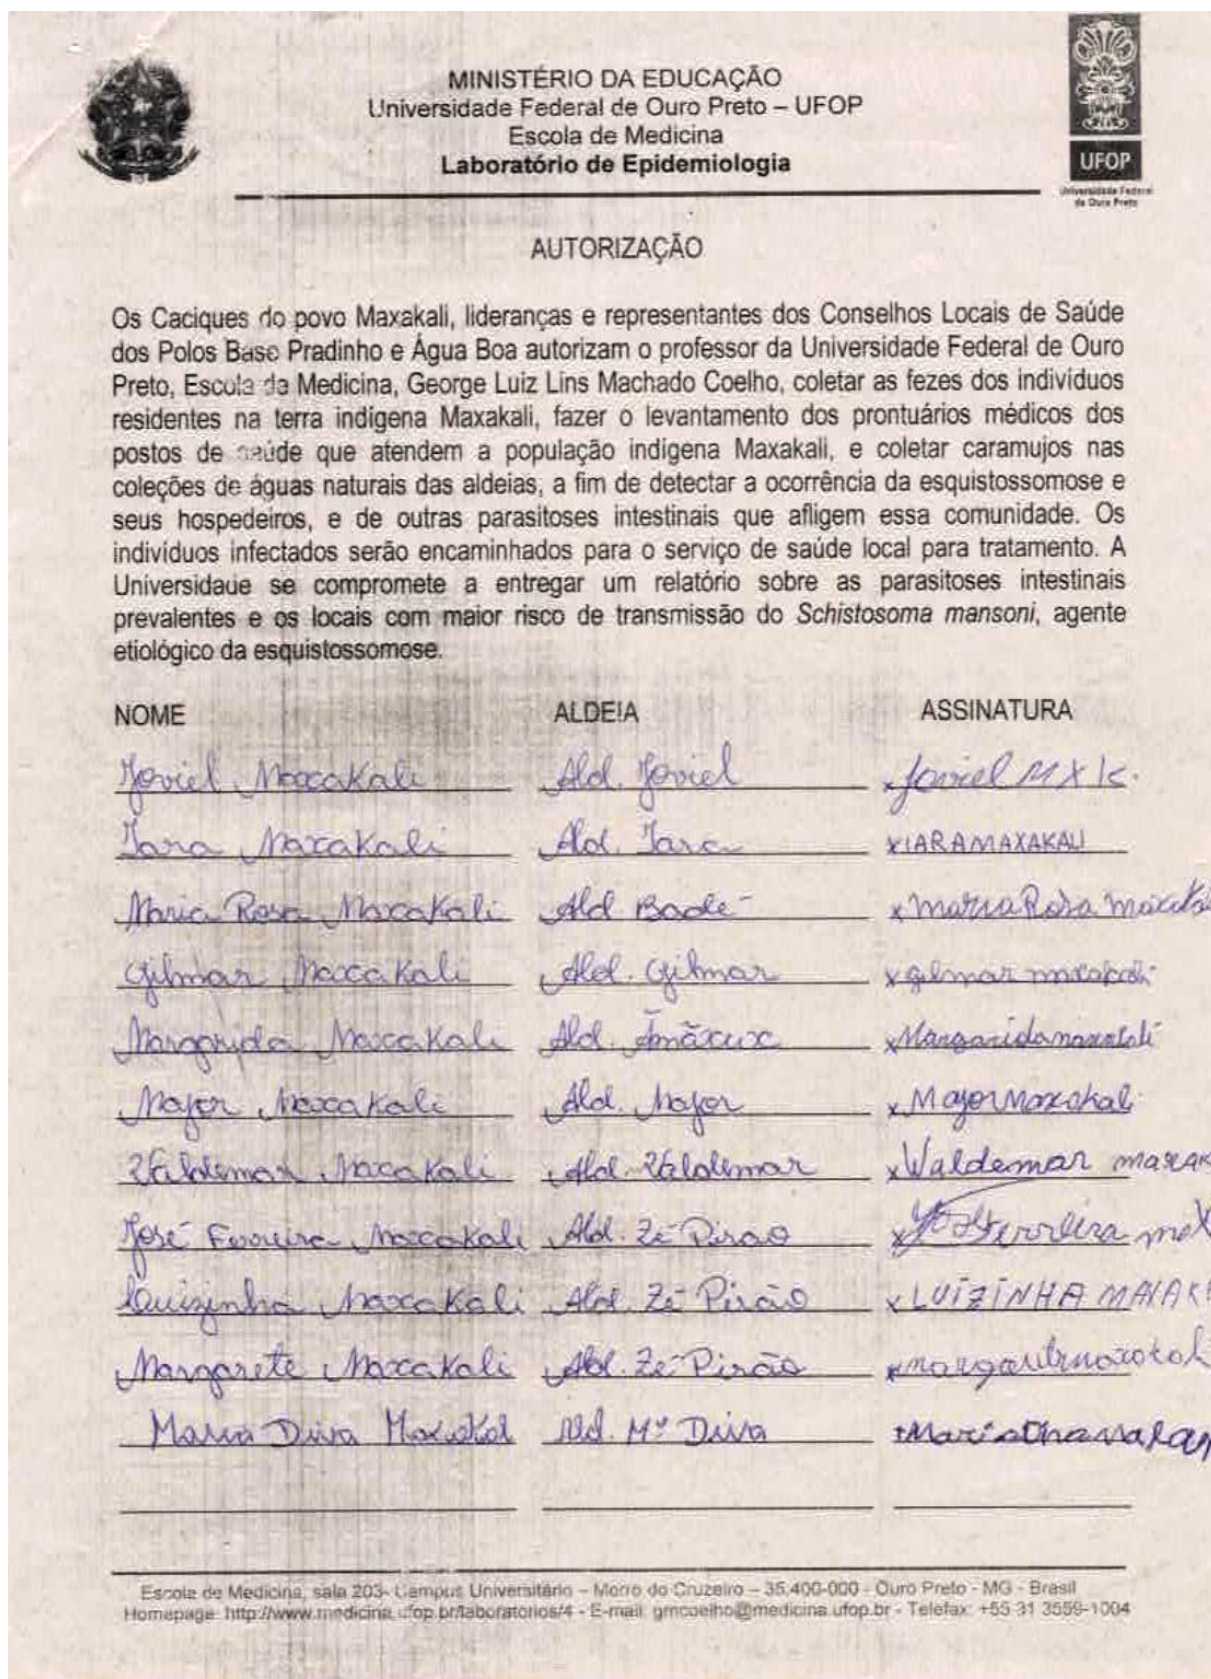 MINISTÉRIO DA EDUCAÇÃO
Universidade Federal de Ouro Preto – UFOP
Escola de Medicina
Laboratório de Epidemiologia
UFOP
Universidade Federal
de Ouro Preto
AUTORIZAÇÃO
Os Caciques do povo Maxakali, lideranças e representantes dos Conselhos Locais de Saúde
dos Polos Base Pradinho e Água Boa autorizam o professor da Universidade Federal de Ouro
Preto, Escola de Medicina, George Luiz Lins Machado Coelho, coletar as fezes dos indivíduos
residentes na terra indígena Maxakali, fazer o levantamento dos prontuários médicos dos
postos de saúde que atendem a população indígena Maxakali, e coletar caramujos nas
coleções de águas naturais das aldeias, a fim de detectar a ocorrência da esquistossomose e
seus hospedeiros, e de outras parasitoses intestinais que afligem essa comunidade. Os
indivíduos infectados serão encaminhados para o serviço de saúde local para tratamento. A
Universidade se compromete a entregar um relatório sobre as parasitoses intestinais
prevalentes e os locais com maior risco de transmissão do Schistosoma mansoni, agente
etiológico da esquistossomose.
NOME ALDEIA ASSINATURA
Joviel Maxakali Ald. Joviel x Joviel M X K.
Iara Maxakali Ald. Iara x IARA MAXAKALI
Maria Rosa Maxakali Ald Badé x maria Rosa
Gilmar Maxakali Ald. Gilmar x gilmar
Margarida Maxakali Ald. x Margarida
Major Maxakali Ald. Major x Major Maxakali
Valdemar Maxakali Ald. Valdemar x Waldemar maxak
José Ferreira Maxakali Ald. Zé Pirão x
Luizinha Maxakali Ald. Zé Pirão x LUIZINHA
Margarete Maxakali Ald. Zé Pirão x
Maria Diva Maxakal Ald. Mª Diva x Maria
Escola de Medicina, sala 203- Campus Universitário – Morro do Cruzeiro – 35.400-000 - Ouro Preto - MG - Brasil
Homepage: http://www.medicina.ufop.br/laboratorios/4 - E-mail: gmcoelho@medicina.ufop.br - Telefax: +55 31 3559-1004